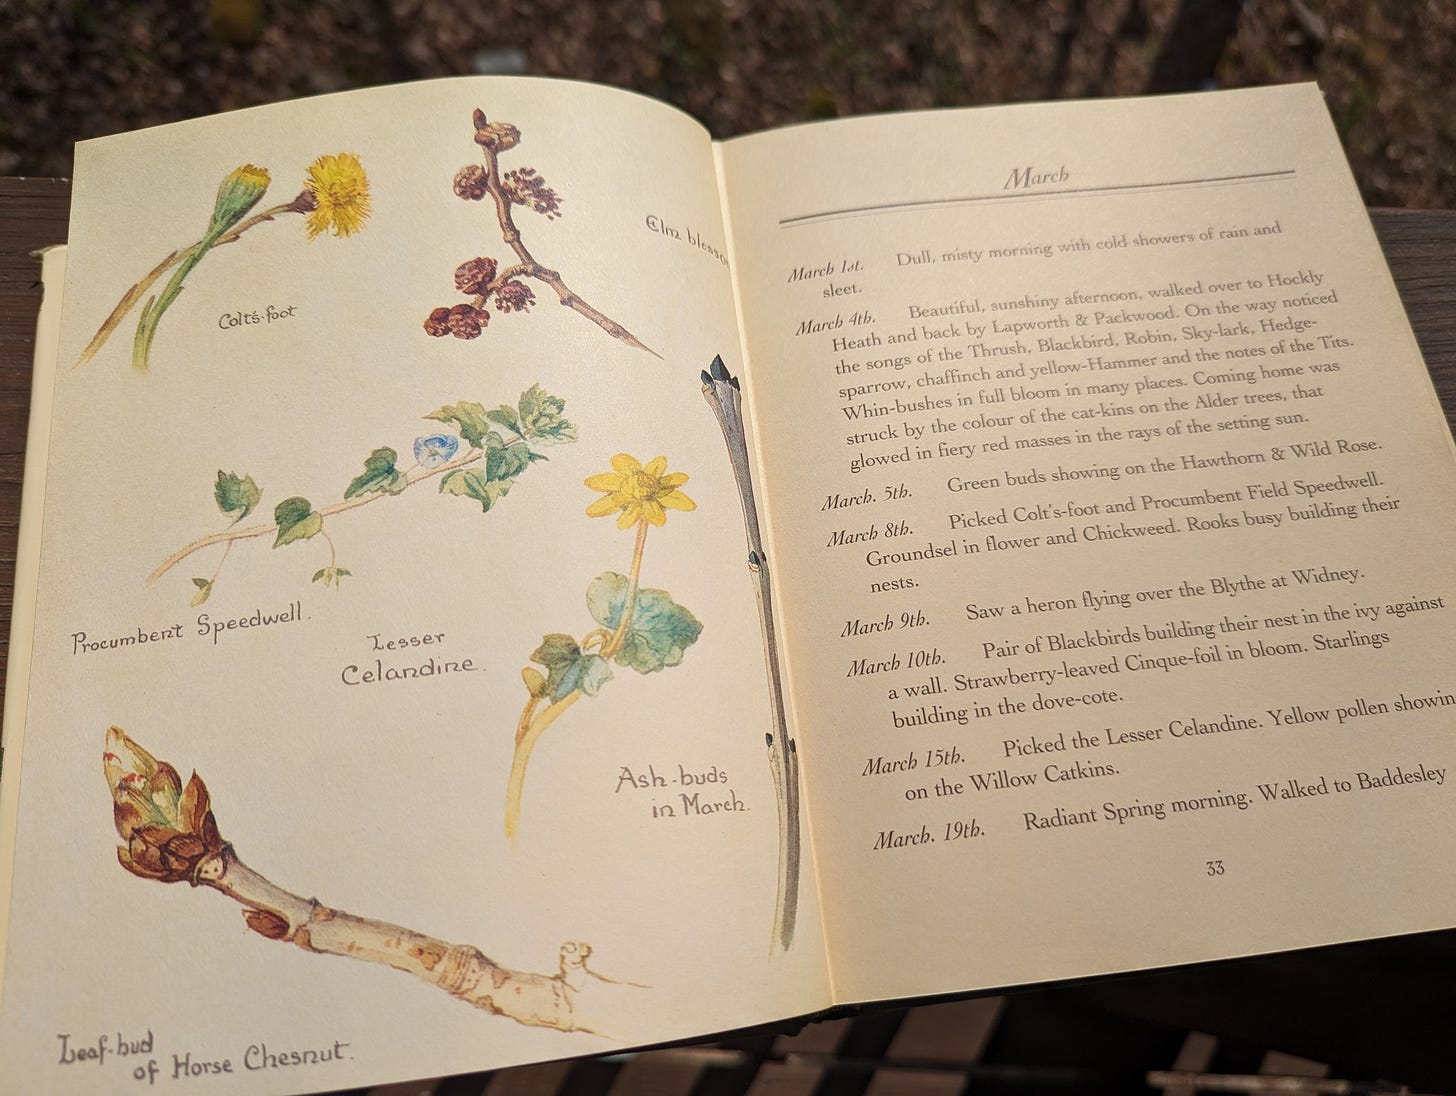 Colt's-foot
Elm
Procumbent Speedwell.
Lesser
Celandine.
Ash-buds
in March.
Leaf-bud
of Horse Chesnut.
March
March 1st. Dull, misty morning with cold showers of rain and
sleet.
March 4th. Beautiful, sunshiny afternoon, walked over to Hockly
Heath and back by Lapworth & Packwood. On the way noticed
the songs of the Thrush, Blackbird, Robin, Sky-lark, Hedge-
sparrow, chaffinch and yellow-Hammer and the notes of the Tits.
Whin-bushes in full bloom in many places. Coming home was
struck by the colour of the cat-kins on the Alder trees, that
glowed in fiery red masses in the rays of the setting sun.
March. 5th. Green buds showing on the Hawthorn & Wild Rose.
March 8th. Picked Colt's-foot and Procumbent Field Speedwell.
Groundsel in flower and Chickweed. Rooks busy building their
nests.
March 9th. Saw a heron flying over the Blythe at Widney.
March 10th. Pair of Blackbirds building their nest in the ivy against
a wall. Strawberry-leaved Cinque-foil in bloom. Starlings
building in the dove-cote.
March 15th. Picked the Lesser Celandine. Yellow pollen showin
on the Willow Catkins.
March. 19th. Radiant Spring morning. Walked to Baddesley
33